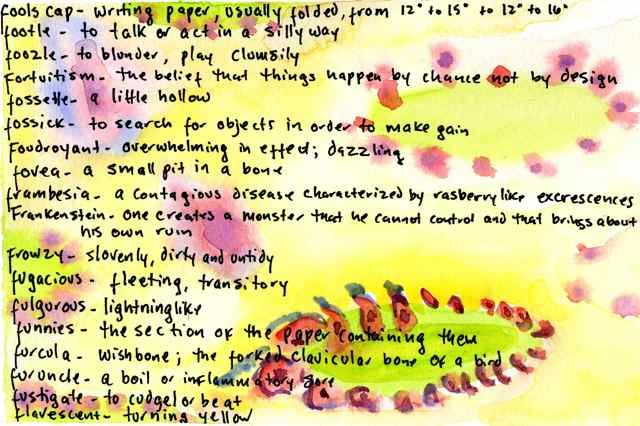 fools cap - writing paper, usually folded, from 12" to 15" to 12" to 16"
footle - to talk or act in a silly way
foozle - to blunder, play clumsily
fortuitism - the belief that things happen by chance not by design
fossette - a little hollow
fossick - to search for objects in order to make gain
Foudroyant - overwhelming in effect; dazzling
fovea - a small pit in a bone
frambesia - a contagious disease characterized by rasberrylike excrescences
Frankenstein - one creates a monster that he cannot control and that brings about
his own ruin
frowzy - slovenly, dirty and untidy
fugacious - fleeting, transitory
fulgorous - lightninglike
funnies - the section of the paper containing them
furcula - wishbone; the forked clavicular bone of a bird
furuncle - a boil or inflammatory sore
fustigate - to cudgel or beat
flavescent - turning yellow